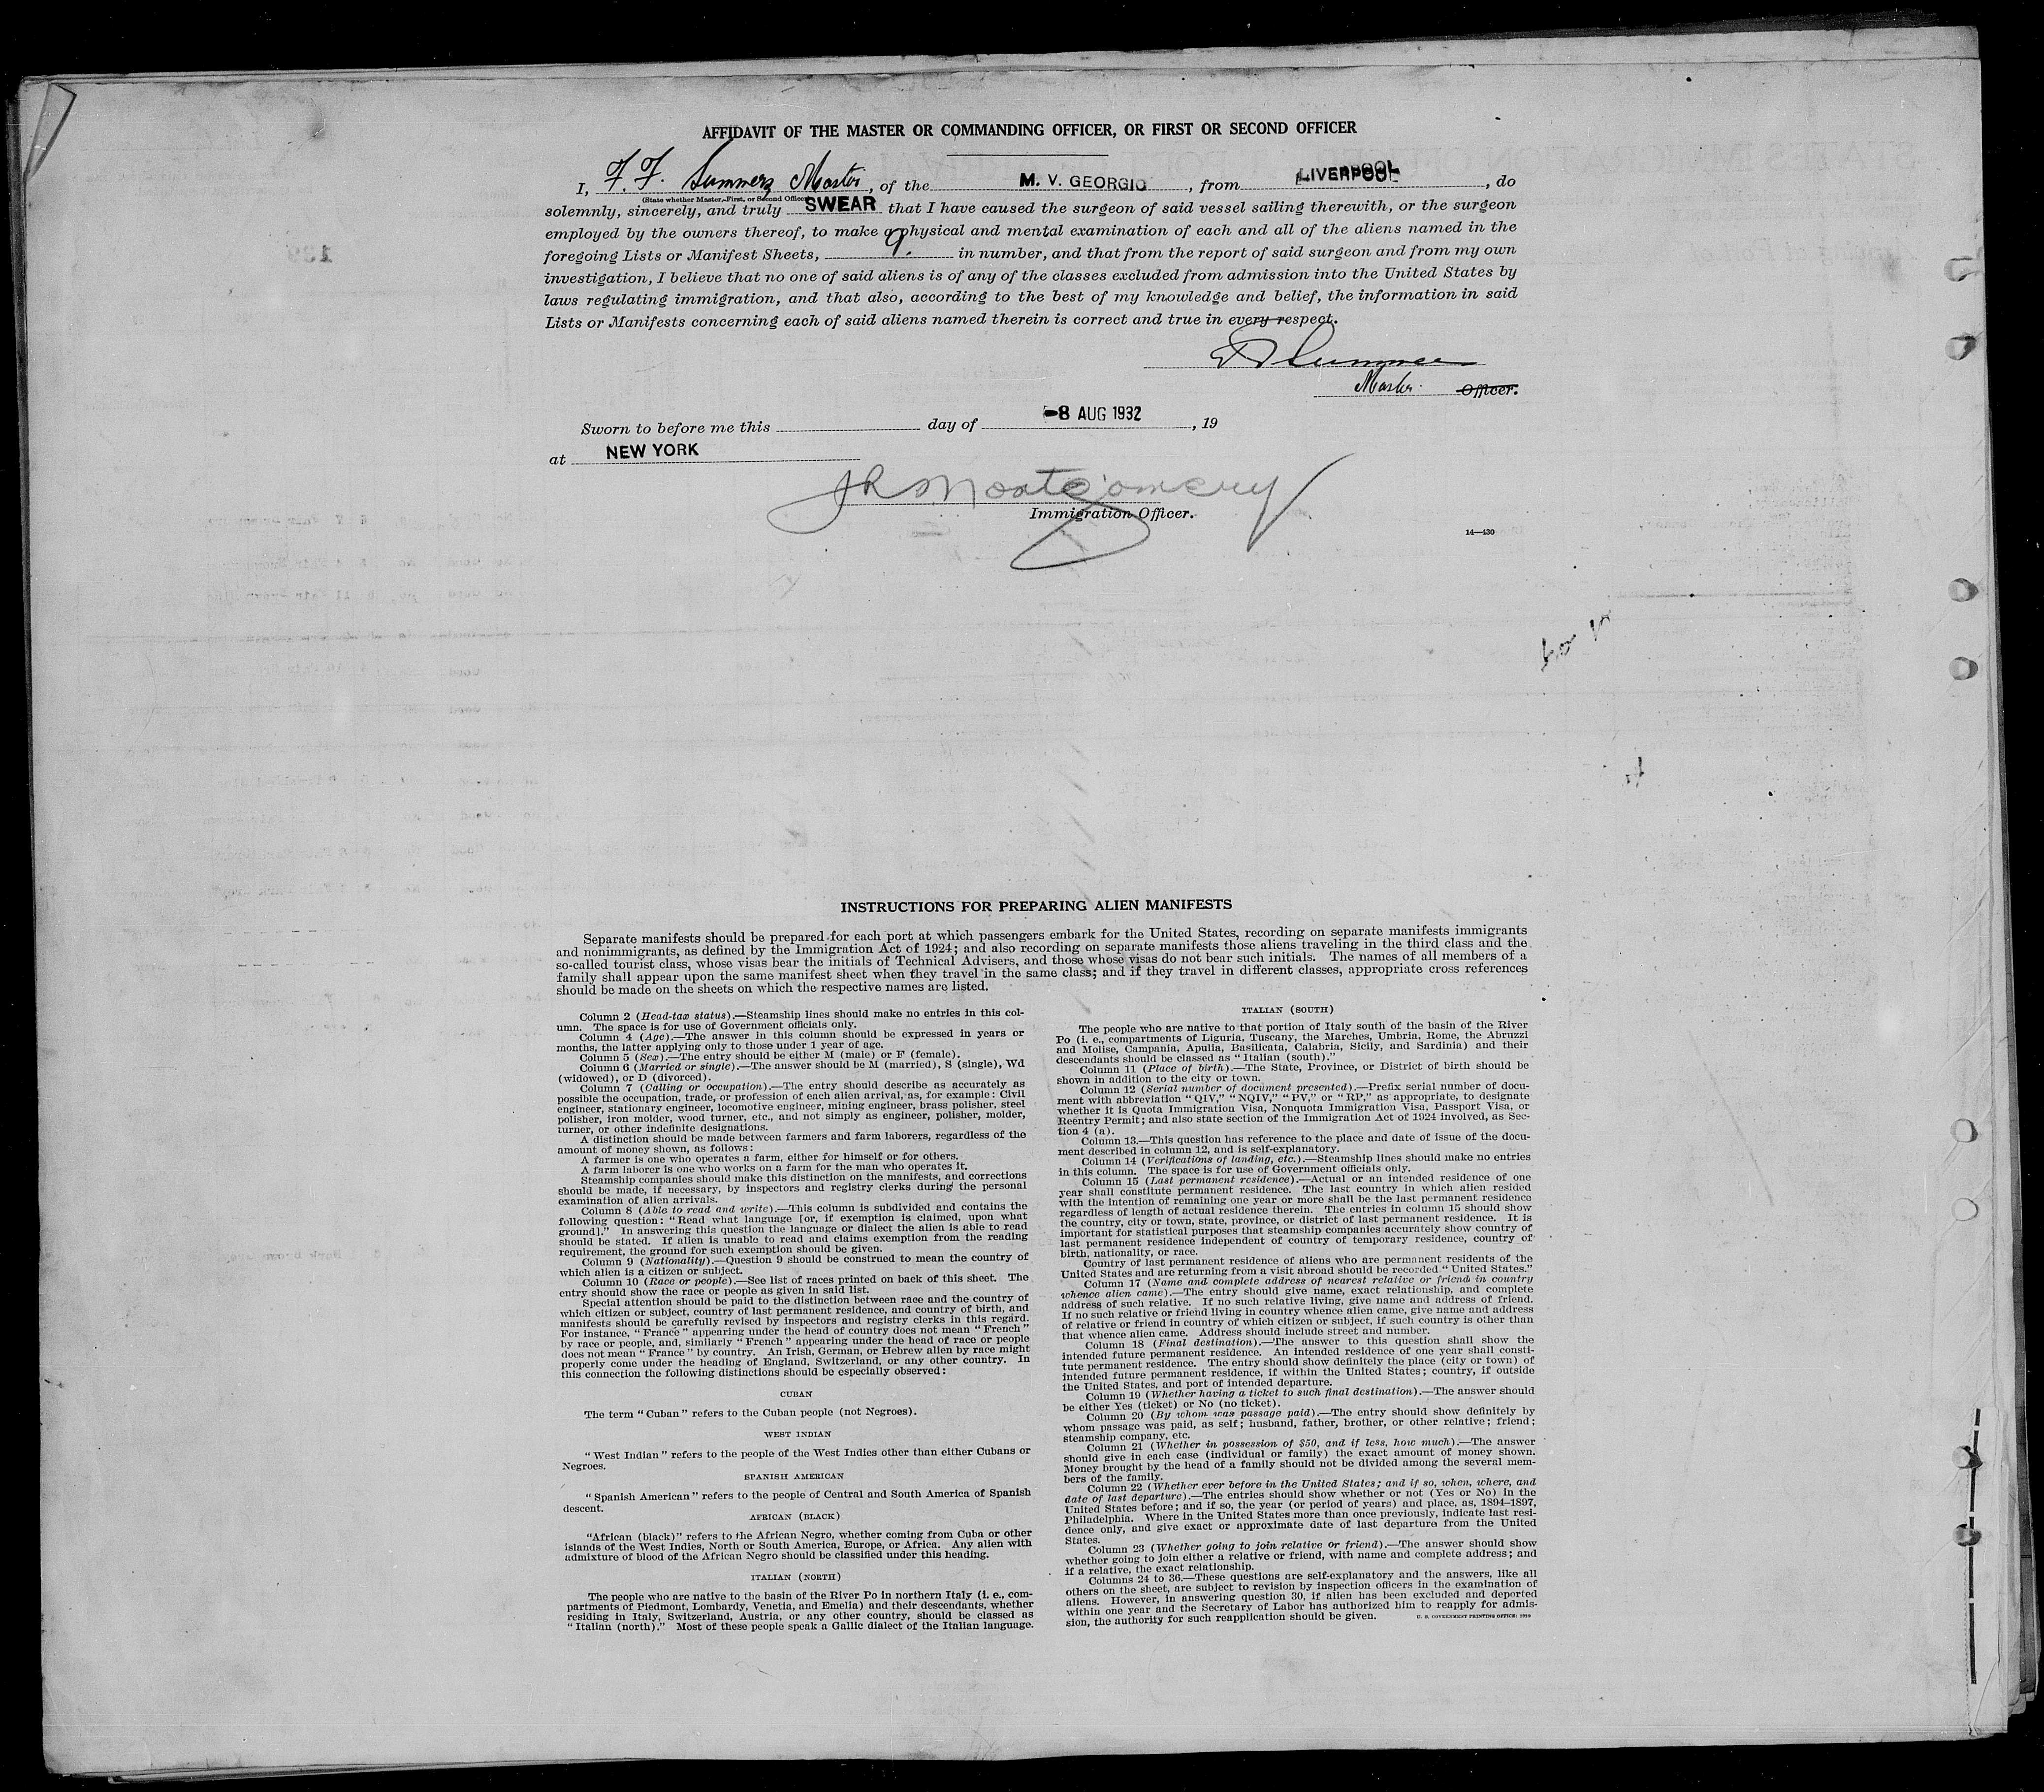 AFFIDAVIT OF THE MASTER OR COMMANDING OFFICER, OR FIRST OR SECOND OFFICER
I, F. F. Summers Master, of the M. V. GEORGIC, from LIVERPOOL, do
(State whether Master, First, or Second Officer)
solemnly, sincerely, and truly SWEAR that I have caused the surgeon of said vessel sailing therewith, or the surgeon
employed by the owners thereof, to make a physical and mental examination of each and all of the aliens named in the
foregoing Lists or Manifest Sheets, 9. in number, and that from the report of said surgeon and from my own
investigation, I believe that no one of said aliens is of any of the classes excluded from admission into the United States by
laws regulating immigration, and that also, according to the best of my knowledge and belief, the information in said
Lists or Manifests concerning each of said aliens named therein is correct and true in every respect.
Master. Officer.
Sworn to before me this day of -8 AUG 1932, 19
at NEW YORK
JR Montgomery
Immigration Officer.
14—430
INSTRUCTIONS FOR PREPARING ALIEN MANIFESTS
Separate manifests should be prepared for each port at which passengers embark for the United States, recording on separate manifests immigrants
and nonimmigrants, as defined by the Immigration Act of 1924; and also recording on separate manifests those aliens traveling in the third class and the
so-called tourist class, whose visas bear the initials of Technical Advisers, and those whose visas do not bear such initials. The names of all members of a
family shall appear upon the same manifest sheet when they travel in the same class; and if they travel in different classes, appropriate cross references
should be made on the sheets on which the respective names are listed.
Column 2 (Head-tax status).—Steamship lines should make no entries in this col-
umn. The space is for use of Government officials only.
Column 4 (Age).—The answer in this column should be expressed in years or
months, the latter applying only to those under 1 year of age.
Column 5 (Sex).—The entry should be either M (male) or F (female).
Column 6 (Married or single).—The answer should be M (married), S (single), Wd
(widowed), or D (divorced).
Column 7 (Calling or occupation).—The entry should describe as accurately as
possible the occupation, trade, or profession of each alien arrival, as, for example: Civil
engineer, stationary engineer, locomotive engineer, mining engineer, brass polisher, steel
polisher, iron molder, wood turner, etc., and not simply as engineer, polisher, molder,
turner, or other indefinite designations.
A distinction should be made between farmers and farm laborers, regardless of the
amount of money shown, as follows:
A farmer is one who operates a farm, either for himself or for others.
A farm laborer is one who works on a farm for the man who operates it.
Steamship companies should make this distinction on the manifests, and corrections
should be made, if necessary, by inspectors and registry clerks during the personal
examination of alien arrivals.
Column 8 (Able to read and write).—This column is subdivided and contains the
following question: "Read what language [or, if exemption is claimed, upon what
ground]." In answering this question the language or dialect the alien is able to read
should be stated. If alien is unable to read and claims exemption from the reading
requirement, the ground for such exemption should be given.
Column 9 (Nationality).—Question 9 should be construed to mean the country of
which alien is a citizen or subject.
Column 10 (Race or people).—See list of races printed on back of this sheet. The
entry should show the race or people as given in said list.
Special attention should be paid to the distinction between race and the country of
which citizen or subject, country of last permanent residence, and country of birth, and
manifests should be carefully revised by inspectors and registry clerks in this regard.
For instance, "France" appearing under the head of country does not mean "French"
by race or people, and, similarly "French" appearing under the head of race or people
does not mean "France" by country. An Irish, German, or Hebrew alien by race might
properly come under the heading of England, Switzerland, or any other country. In
this connection the following distinctions should be especially observed:
CUBAN
The term "Cuban" refers to the Cuban people (not Negroes).
WEST INDIAN
"West Indian" refers to the people of the West Indies other than either Cubans or
Negroes.
SPANISH AMERICAN
"Spanish American" refers to the people of Central and South America of Spanish
descent.
AFRICAN (BLACK)
"African (black)" refers to the African Negro, whether coming from Cuba or other
islands of the West Indies, North or South America, Europe, or Africa. Any alien with
admixture of blood of the African Negro should be classified under this heading.
ITALIAN (NORTH)
The people who are native to the basin of the River Po in northern Italy (i. e., com-
partments of Piedmont, Lombardy, Venetia, and Emelia) and their descendants, whether
residing in Italy, Switzerland, Austria, or any other country, should be classed as
"Italian (north)." Most of these people speak a Gallic dialect of the Italian language.
ITALIAN (SOUTH)
The people who are native to that portion of Italy south of the basin of the River
Po (i. e., compartments of Liguria, Tuscany, the Marches, Umbria, Rome, the Abruzzi
and Molise, Campania, Apulia, Basilicata, Calabria, Sicily, and Sardinia) and their
descendants should be classed as "Italian (south)."
Column 11 (Place of birth).—The State, Province, or District of birth should be
shown in addition to the city or town.
Column 12 (Serial number of document presented).—Prefix serial number of docu-
ment with abbreviation "QIV," "NQIV," "PV," or "RP," as appropriate, to designate
whether it is Quota Immigration Visa, Nonquota Immigration Visa, Passport Visa, or
Reëntry Permit; and also state section of the Immigration Act of 1924 involved, as Sec-
tion 4 (a).
Column 13.—This question has reference to the place and date of issue of the docu-
ment described in column 12, and is self-explanatory.
Column 14 (Verifications of landing, etc.).—Steamship lines should make no entries
in this column. The space is for use of Government officials only.
Column 15 (Last permanent residence).—Actual or an intended residence of one
year shall constitute permanent residence. The last country in which alien resided
with the intention of remaining one year or more shall be the last permanent residence
regardless of length of actual residence therein. The entries in column 15 should show
the country, city or town, state, province, or district of last permanent residence. It is
important for statistical purposes that steamship companies accurately show country of
last permanent residence independent of country of temporary residence, country of
birth, nationality, or race.
Country of last permanent residence of aliens who are permanent residents of the
United States and are returning from a visit abroad should be recorded "United States."
Column 17 (Name and complete address of nearest relative or friend in country
whence alien came).—The entry should give name, exact relationship, and complete
address of such relative. If no such relative living, give name and address of friend.
If no such relative or friend living in country whence alien came, give name and address
of relative or friend in country of which citizen or subject, if such country is other than
that whence alien came. Address should include street and number.
Column 18 (Final destination).—The answer to this question shall show the
intended future permanent residence. An intended residence of one year shall consti-
tute permanent residence. The entry should show definitely the place (city or town) of
intended future permanent residence, if within the United States; country, if outside
the United States, and port of intended departure.
Column 19 (Whether having a ticket to such final destination).—The answer should
be either Yes (ticket) or No (no ticket).
Column 20 (By whom was passage paid).—The entry should show definitely by
whom passage was paid, as self; husband, father, brother, or other relative; friend;
steamship company, etc.
Column 21 (Whether in possession of $50, and if less, how much).—The answer
should give in each case (individual or family) the exact amount of money shown.
Money brought by the head of a family should not be divided among the several mem-
bers of the family.
Column 22 (Whether ever before in the United States; and if so, when, where, and
date of last departure).—The entries should show whether or not (Yes or No) in the
United States before; and if so, the year (or period of years) and place, as, 1894–1897,
Philadelphia. Where in the United States more than once previously, indicate last resi-
dence only, and give exact or approximate date of last departure from the United
States.
Column 23 (Whether going to join relative or friend).—The answer should show
whether going to join either a relative or friend, with name and complete address; and
if a relative, the exact relationship.
Columns 24 to 36.—These questions are self-explanatory and the answers, like all
others on the sheet, are subject to revision by inspection officers in the examination of
aliens. However, in answering question 30, if alien has been excluded and deported
within one year and the Secretary of Labor has authorized him to reapply for admis-
sion, the authority for such reapplication should be given.
U. S. GOVERNMENT PRINTING OFFICE: